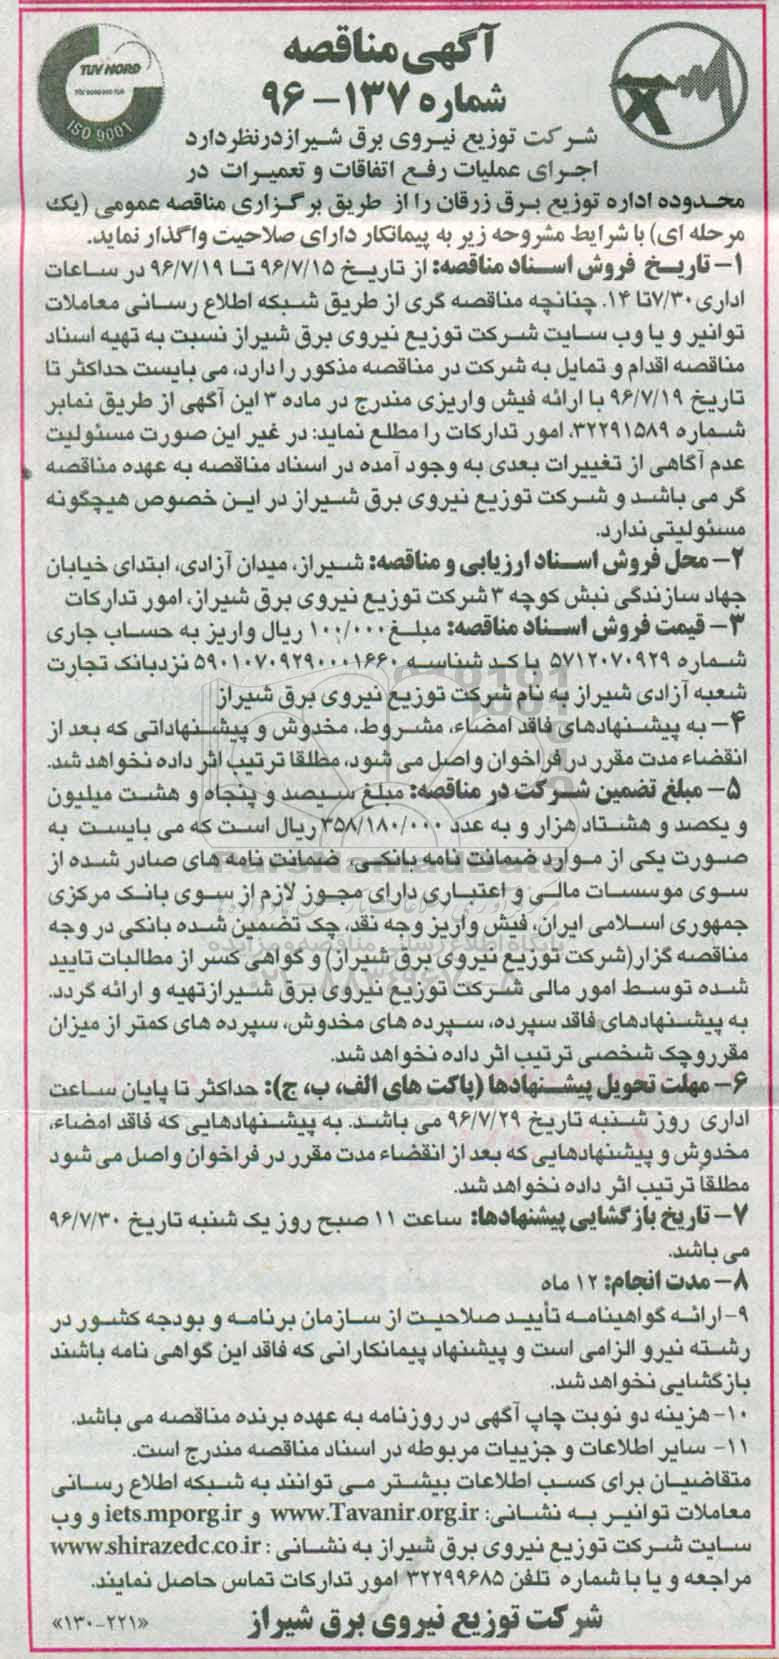 آگهی مناقصه
شماره ۱۳۷-۹۶
TUV NORD
ISO 9001
شرکت توزیع نیروی برق شیراز در نظر دارد
اجرای عملیات رفع اتفاقات و تعمیرات در
محدوده اداره توزیع برق زرقان را از طریق برگزاری مناقصه عمومی (یک
مرحله ای) با شرایط مشروحه زیر به پیمانکار دارای صلاحیت واگذار نماید.
۱- تاریخ فروش اسناد مناقصه: از تاریخ ۹۶/۷/۱۵ تا ۹۶/۷/۱۹ در ساعات
اداری ۷/۳۰ تا ۱۴. چنانچه مناقصه گری از طریق شبکه اطلاع رسانی معاملات
توانیر و یا وب سایت شرکت توزیع نیروی برق شیراز نسبت به تهیه اسناد
مناقصه اقدام و تمایل به شرکت در مناقصه مذکور را دارد، می بایست حداکثر تا
تاریخ ۹۶/۷/۱۹ با ارائه فیش واریزی مندرج در ماده ۳ این آگهی از طریق نمابر
شماره ۳۲۲۹۱۵۸۹، امور تدارکات را مطلع نماید: در غیر این صورت مسئولیت
عدم آگاهی از تغییرات بعدی به وجود آمده در اسناد مناقصه به عهده مناقصه
گر می باشد و شرکت توزیع نیروی برق شیراز در این خصوص هیچگونه
مسئولیتی ندارد.
۲- محل فروش اسناد ارزیابی و مناقصه: شیراز، میدان آزادی، ابتدای خیابان
جهاد سازندگی نبش کوچه ۳ شرکت توزیع نیروی برق شیراز، امور تدارکات
۳- قیمت فروش اسناد مناقصه: مبلغ ۱۰۰/۰۰۰ ریال واریز به حساب جاری
شماره ۵۷۱۲۰۷۰۹۲۹ با کد شناسه ۵۹۰۱۰۷۰۹۲۹۰۰۰۱۶۶۰ نزد بانک تجارت
شعبه آزادی شیراز به نام شرکت توزیع نیروی برق شیراز
۴- به پیشنهادهای فاقد امضاء، مشروط، مخدوش و پیشنهاداتی که بعد از
انقضاء مدت مقرر در فراخوان واصل می شود، مطلقا ترتیب اثر داده نخواهد شد.
۵- مبلغ تضمین شرکت در مناقصه: مبلغ سیصد و پنجاه و هشت میلیون
و یکصد و هشتاد هزار و به عدد ۳۵۸/۱۸۰/۰۰۰ ریال است که می بایست به
صورت یکی از موارد ضمانت نامه بانکی، ضمانت نامه های صادر شده از
سوی موسسات مالی و اعتباری دارای مجوز لازم از سوی بانک مرکزی
جمهوری اسلامی ایران، فیش واریز وجه نقد، چک تضمین شده بانکی در وجه
مناقصه گزار(شرکت توزیع نیروی برق شیراز) و گواهی کسر از مطالبات تایید
شده توسط امور مالی شرکت توزیع نیروی برق شیراز تهیه و ارائه گردد.
به پیشنهادهای فاقد سپرده، سپرده های مخدوش، سپرده های کمتر از میزان
مقرر و چک شخصی ترتیب اثر داده نخواهد شد.
۶- مهلت تحویل پیشنهادها (پاکت های الف، ب، ج): حداکثر تا پایان ساعت
اداری روز شنبه تاریخ ۹۶/۷/۲۹ می باشد. به پیشنهادهایی که فاقد امضاء،
مخدوش و پیشنهادهایی که بعد از انقضاء مدت مقرر در فراخوان واصل می شود
مطلقاً ترتیب اثر داده نخواهد شد.
۷- تاریخ بازگشایی پیشنهادها: ساعت ۱۱ صبح روز یک شنبه تاریخ ۹۶/۷/۳۰
می باشد.
۸- مدت انجام: ۱۲ ماه
۹- ارائه گواهینامه تأیید صلاحیت از سازمان برنامه و بودجه کشور در
رشته نیرو الزامی است و پیشنهاد پیمانکارانی که فاقد این گواهی نامه باشند
بازگشایی نخواهد شد.
۱۰- هزینه دو نوبت چاپ آگهی در روزنامه به عهده برنده مناقصه می باشد.
۱۱- سایر اطلاعات و جزییات مربوطه در اسناد مناقصه مندرج است.
متقاضیان برای کسب اطلاعات بیشتر می توانند به شبکه اطلاع رسانی
معاملات توانیر به نشانی: www.Tavanir.org.ir و iets.mporg.ir و وب
سایت شرکت توزیع نیروی برق شیراز به نشانی : www.shirazedc.co.ir
مراجعه و یا با شماره تلفن ۳۲۲۹۹۶۸۵ امور تدارکات تماس حاصل نمایند.
شرکت توزیع نیروی برق شیراز
«۱۳۰-۲۲۱»
ParsNamadData
پایگاه اطلاع رسانی مناقصه و مزایده